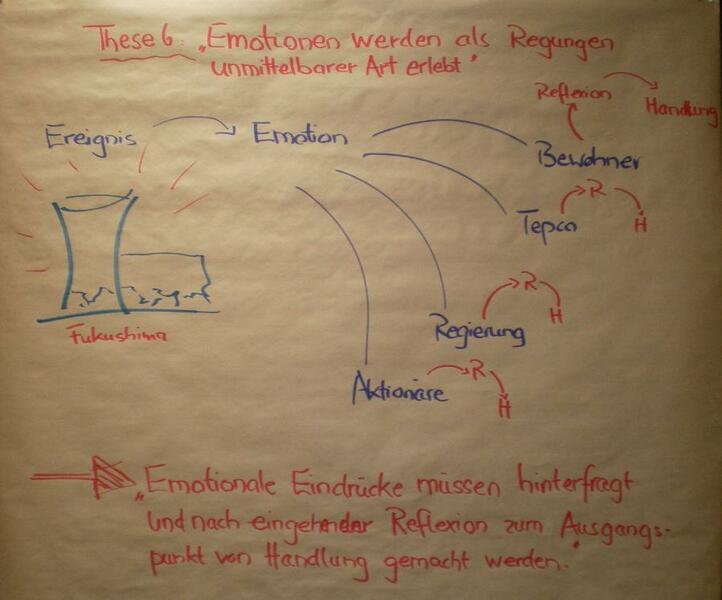 These 6: „Emotionen werden als Regungen
unmittelbarer Art erlebt"
Reflexion
Handlung
Ereignis
Emotion
Bewohner
Tepco
R
H
Fukushima
Regierung
R
H
Aktionäre
R
H
„Emotionale Eindrücke müssen hinterfragt
und nach eingehender Reflexion zum Ausgangs-
punkt von Handlung gemacht werden."